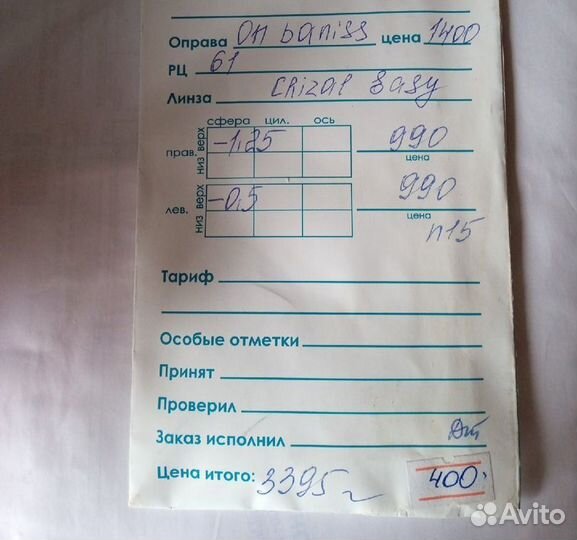 Оправа On baniss цена 1400
РЦ 61
Линза Crizal Easy
сфера цил. ось
прав. верх -1,25 990
низ цена
лев. верх -0,5 990
низ цена
п15
Тариф
Особые отметки
Принят
Проверил
Заказ исполнил
Цена итого: 3395
400
Avito